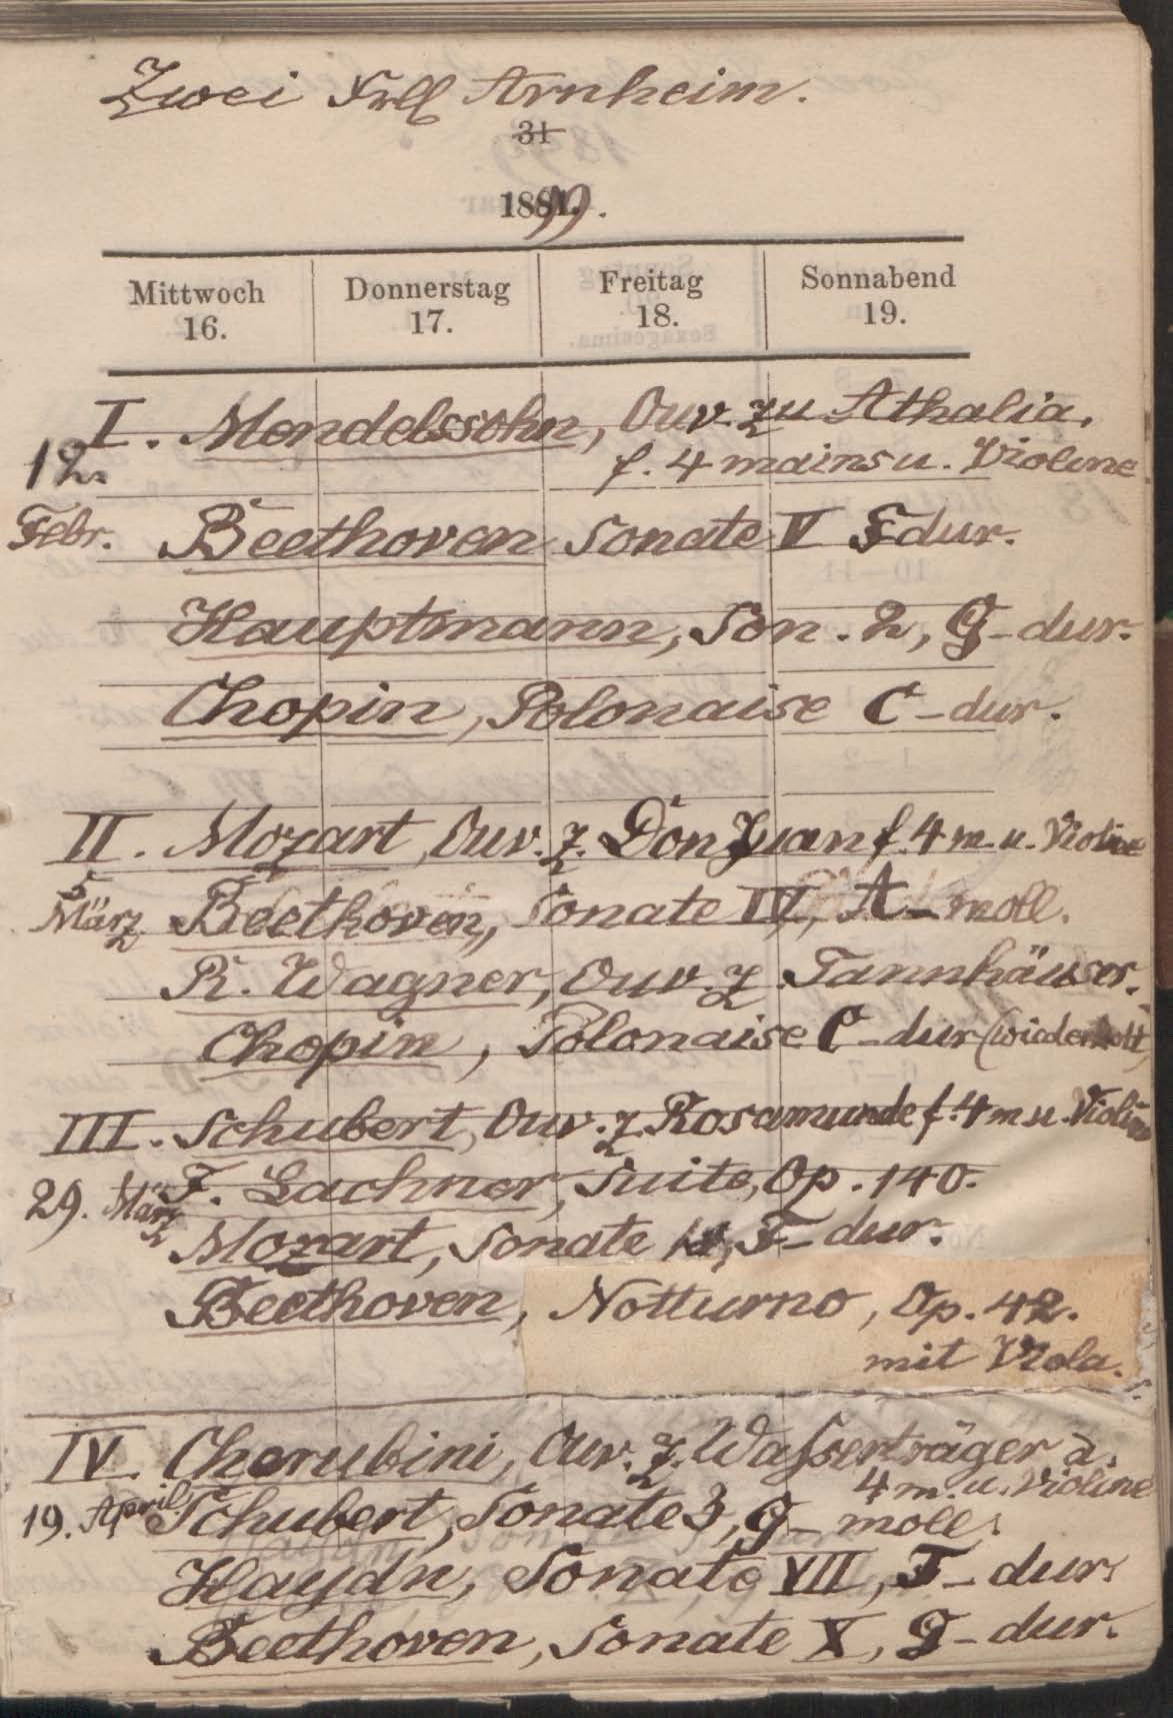 Zwei Frll Arnheim.
31
1899.
Mittwoch 16. Donnerstag 17. Freitag 18. Sonnabend 19.
I. Mendelssohn, Ouv. zu Athalia.
12. f. 4 mains u. Violine
Febr. Beethoven Sonate V F dur.
Hauptmann, Son. 2, G-dur.
Chopin, Polonaise C-dur.
II. Mozart, Ouv. z. Don Juan f. 4 m. u. Violine
5
März Beethoven, Sonate IV, A-moll.
R. Wagner, Ouv. z. Tannhäuser.
Chopin, Polonaise C-dur (wiederholt)
III. Schubert, Ouv. z. Rosamunde f. 4 m u. Violine
29. März F. Lachner, Suite, Op. 140.
Mozart, Sonate F-dur.
Beethoven, Notturno, Op. 42.
mit Viola.
IV. Cherubini, Ouv. z. Wasserträger à.
4 m. u. Violine
19. April Schubert, Sonate 3, G-moll.
Haydn, Sonate VII, F-dur.
Beethoven, Sonate X, G-dur.